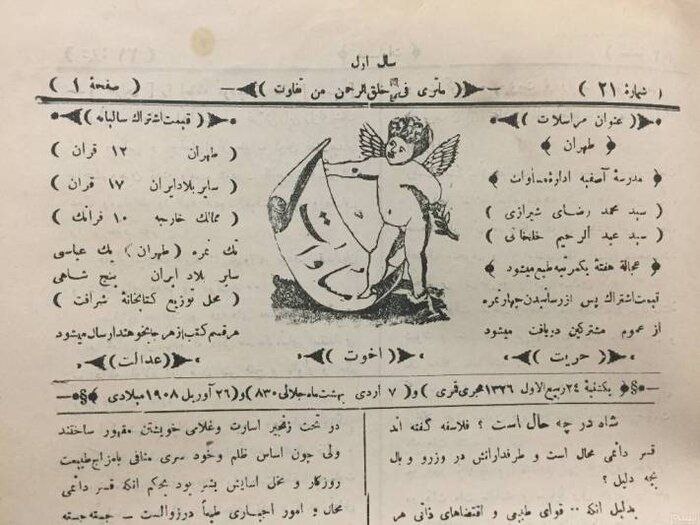 سال اول
شمارهٔ ۲۱ ) ( ماتری فی خلق الرحمن من تفاوت ) ( صفحهٔ ۱ )
( عنوان مراسلات )
( طهران )
مدرسهٔ آصفیه ادارهٔ مساوات
سید محمد رضای شیرازی )
سید عبد الرحیم خلخالی )
عجالة هفتهٔ یکمرتبه طبع میشود
قیمت اشتراك پس از رسانیدن چهار نمره
از عموم مشترکین دریافت میشود
( حریت )
مساوات
( اخوت )
( قیمت اشتراك سالیانه )
( طهران ۱۲ قران )
( سایر بلاد ایران ۱۷ قران )
( ممالك خارجه ۱۰ فرانك )
تك نمره ( طهران ) یك عباسی
سایر بلاد ایران پنج شاهی
( محل توزیع کتابخانهٔ شرافت )
هر قسم کتب از هر جا بخواهند ارسال میشود
( عدالت )
یکشنبهٔ ۲۴ ربیع الاول ۱۳۲۶ هجری قمری ) و ( ۷ اردی بهشت ماه جلالی ۸۳۰ ) و ( ۲۶ آوریل ۱۹۰۸ میلادی )
شاه در چه حال است ؟ فلاسفه گفته اند
قسر دائمی محال است و طرفدارانش در وزر و وبال
بچه دلیل ؟
بدلیل انکه ۰۰ قوای طبیعی و اقتضاهای ذاتی هر
در تحت زنجیر اسارت و غلامی خویشتن مقهور ساختند
ولی چون اساس ظلم و خود سری منافی با مزاج طبیعت
روزگار و مخل اسایش بشر بود بحکم انکه قسر دائمی
محال و امور اجباری طبعاً در زوالست — جسته جسته